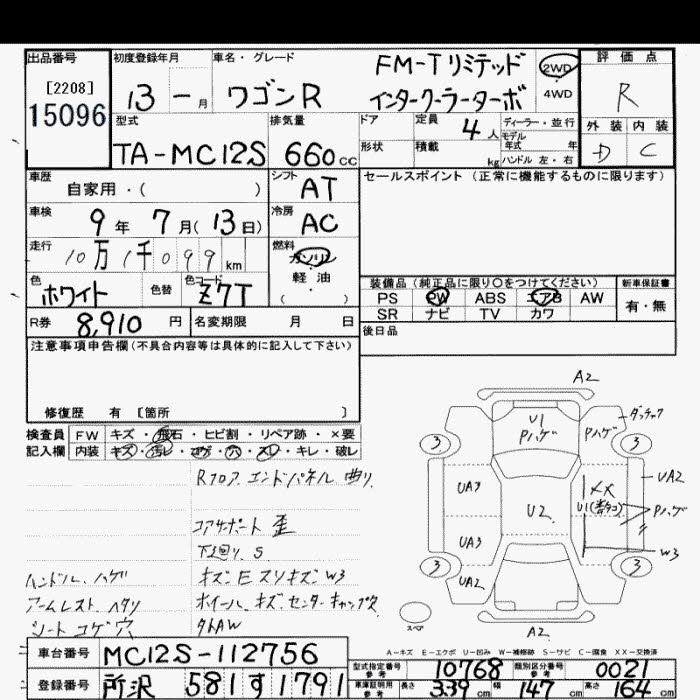 出品番号
[2208]
15096
初度登録年月
13 - 月
車名・グレード
ワゴンR
FM-Tリミテッド
インタークーラーターボ
2WD
4WD
評価点
R
外装 内装
D C
型式
TA-MC12S
排気量
660 cc
ドア
形状
定員
4 人
積載
kg
ディーラー・並行
モデル
年式 年
ハンドル 左・右
車歴
自家用・( )
シフト
AT
セールスポイント (正常に機能するものに限ります)
車検
9年 7月(13日)
冷房
AC
走行
10万1千099 km
燃料
ガソリン
軽油
( )
色
ホワイト
色替
色コード
Z7T
R券
8,910 円
名変期限 月 日
装備品(純正品に限り○をつけてください)
新車保証書
PS PW ABS エアB AW
SR ナビ TV カワ
有・無
後日品
注意事項申告欄(不具合内容等は具体的に記入して下さい)
修復歴 有 [箇所 ]
検査員
記入欄
FW キズ・飛石・ヒビ割・リペア跡・×要
内装 キズ・汚レ・コゲ・穴・スレ・キレ・破レ
Rフロア エンドパネル 曲り
コアサポート 歪
下廻り S
キズ E スリキズ W3
ホイール キズ センターキャップ欠
タトAW
ハンドル ハゲ
アームレスト ヘタリ
シート コゲ穴
A2
U1
Pハゲ
Pハゲ
3
3
UA3
UA2
U2
XX
Pハゲ
UA3
W3
3
3
UA2
スペア
A2
A-キズ E-エクボ U-凹み W-補修跡 S-サビ C-腐食 XX-交換済
車台番号
MC12S-112756
登録番号
所沢 581 す 1791
型式指定番号
参考
10768
類別区分番号
参考
0021
車庫証明用
参考
長さ 339 cm 幅 147 cm 高さ 164 cm